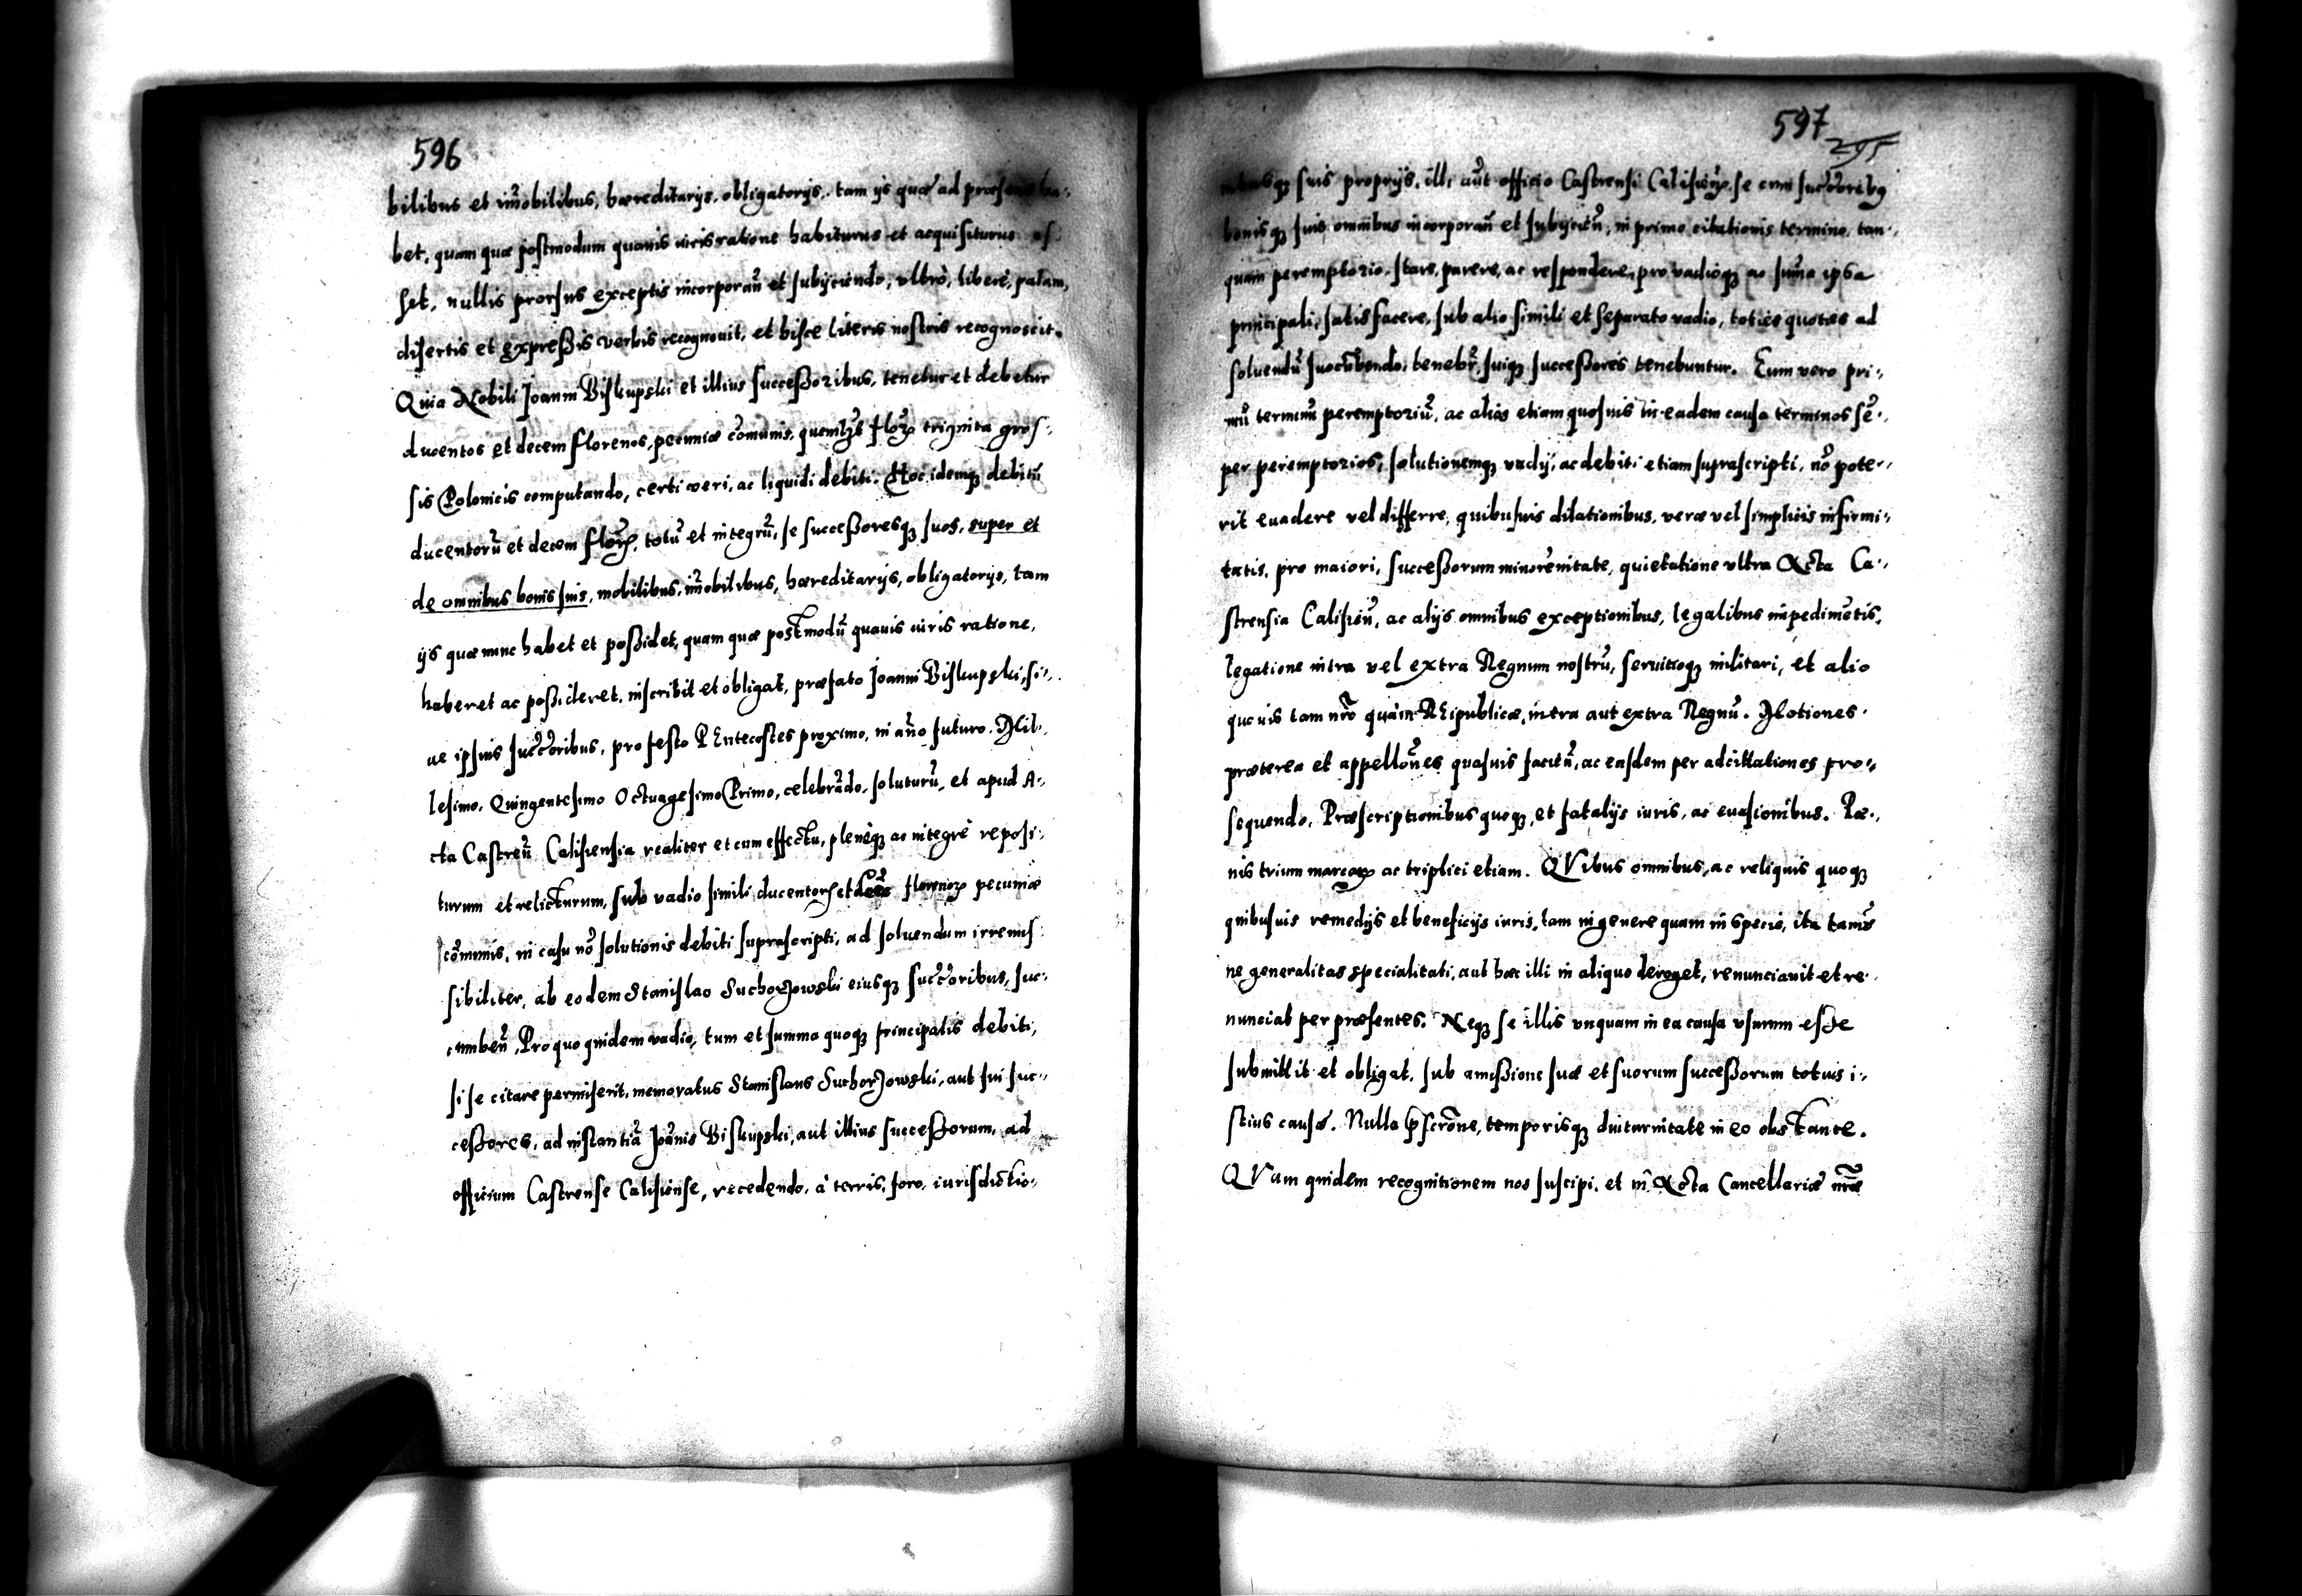 596
bilibus et im̃obilibus, hæreditarijs, obligatorijs, tam ijs quæ ad præsens ha-
bet, quam quæ postmodum quauis iuris ratione habiturus et acquisiturus es-
set, nullis prorsus exceptis incorporañ et subijciendo, vltro, libere, palam,
disertis et expreßis verbis recognouit, et hisce literis nostris recognoscit.
Quia Nobili Joanni Biskupski et illius succeßoribus, tenetur et debetur
ducentos et decem florenos, pecuniæ com̃unis, quemlꝫt floꝝ triginta gros-
sis Polonicis computando, certi veri, ac liquidi debiti. Hoc idemqꝫ debitũ
ducentorũ et decem floꝝ, totũ et integrũ, se succeßoresqꝫ suos, super et
de omnibus bonis suis, mobilibus, im̃obilibus, hæreditarijs, obligatorijs, tam
ijs quæ nunc habet et poßidet, quam quæ postmodũ quauis iuris ratione,
haberet ac poßideret, inscribit et obligat, præfato Joanni Biskupski, si-
ue ipsius succ̃oribus, pro festo PEntecostes proximo, in año futuro. Mil-
lesimo. Quingentesimo Octuagesimo Primo, celebrãdo, soluturũ, et apud A-
cta Castreñ Calisiensia realiter et cum effectu, pleneqꝫ ac integre reposi-
turum et relicturum, sub vadio simili ducentoꝝ et decẽ florenoꝝ pecuniæ
cõmunis, in casu nõ solutionis debiti suprascripti, ad soluendum irremis-
sibiliter, ab eodem Stanislao Suchorzowski eiusqꝫ succ̃oribus, suc-
cumbeñ, Pro quo quidem vadio, tum et summa quoqꝫ principalis debiti,
si se citare permiserit, memoratus Stanislaus Suchorzowski, aut sui suc-
ceßores, ad instantiã Joãnis Biskupski, aut illius succeßorum, ad
officium Castrense Calisiense, recedendo, à terris, foro, iurisdictio-
597
295
nibusqꝫ suis proprijs, illi aũt officio Castrensi Calisieñ, se cum succ̃oribꝯ
bonisqꝫ suis omnibus incorporañ et subijcieñ, in primo citationis termino, tan-
quam peremptorio, stare, parere, ac respondere, pro vadioqꝫ ac sum̃a ipsa
principali, satisfacere, sub alio simili et separato vadio, toties quoties ad
soluendũ succũbendo, tenebr̃, suiqꝫ succeßores tenebuntur. Eum vero pri-
mũ terminũ peremptoriũ, ac alios etiam quosuis in eadem causa terminos sẽ-
per peremptorios, solutionemqꝫ vadij, ac debiti etiam suprascripti, nõ pote-
rit euadere vel differre, quibusuis dilationibus, veræ vel simplicis infirmi-
tatis, pro maiori, succeßorum minorẽnitate, quietatione vltra Acta Ca-
strensia Calisieñ, ac alijs omnibus exceptionibus, legalibus impedimẽtis,
legatione intra vel extra Regnum nostrũ, seruitioqꝫ militari, et alio
quouis tam nr̃o quàm REipublicæ, intra aut extra Regnũ. Motiones
præterea et appellõnes quasuis facieñ, ac easdem per adcittationes pro-
sequendo. Præscriptionibus quoqꝫ, et fatalijs iuris, ac euasionibus. Pæ-
nis trium marcaꝝ ac triplici etiam. QVibus omnibus, ac reliquis quoqꝫ
quibusuis remedijs et beneficijs iuris, tam in genere quam in specie, ita tamẽ
ne generalitas specialitati, aut hæc illi in aliquo deroget, renunciauit et re-
nunciat per præsentes. Neqꝫ se illis vnquam in ea causa vsurum eße
submittit et obligat, sub amißione suæ et suorum succeßorum totius i-
stius causæ. Nulla p̃scrõne, temporisqꝫ diuturnitate in eo obstante.
QVam quidem recognitionem nos suscipi, et in Acta Cancellariæ nr̃æ